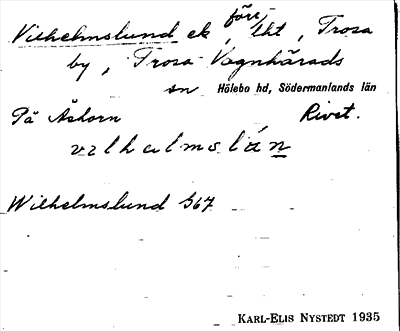 Vilhelmslund ek, före, lht, Trosa
by, Trosa-Vagnhärads
sn Hölebo hd, Södermanlands län
På Åhorn Rivet.
vilhalmslán
Wilhelmslund 567
KARL-ELIS NYSTEDT 1935